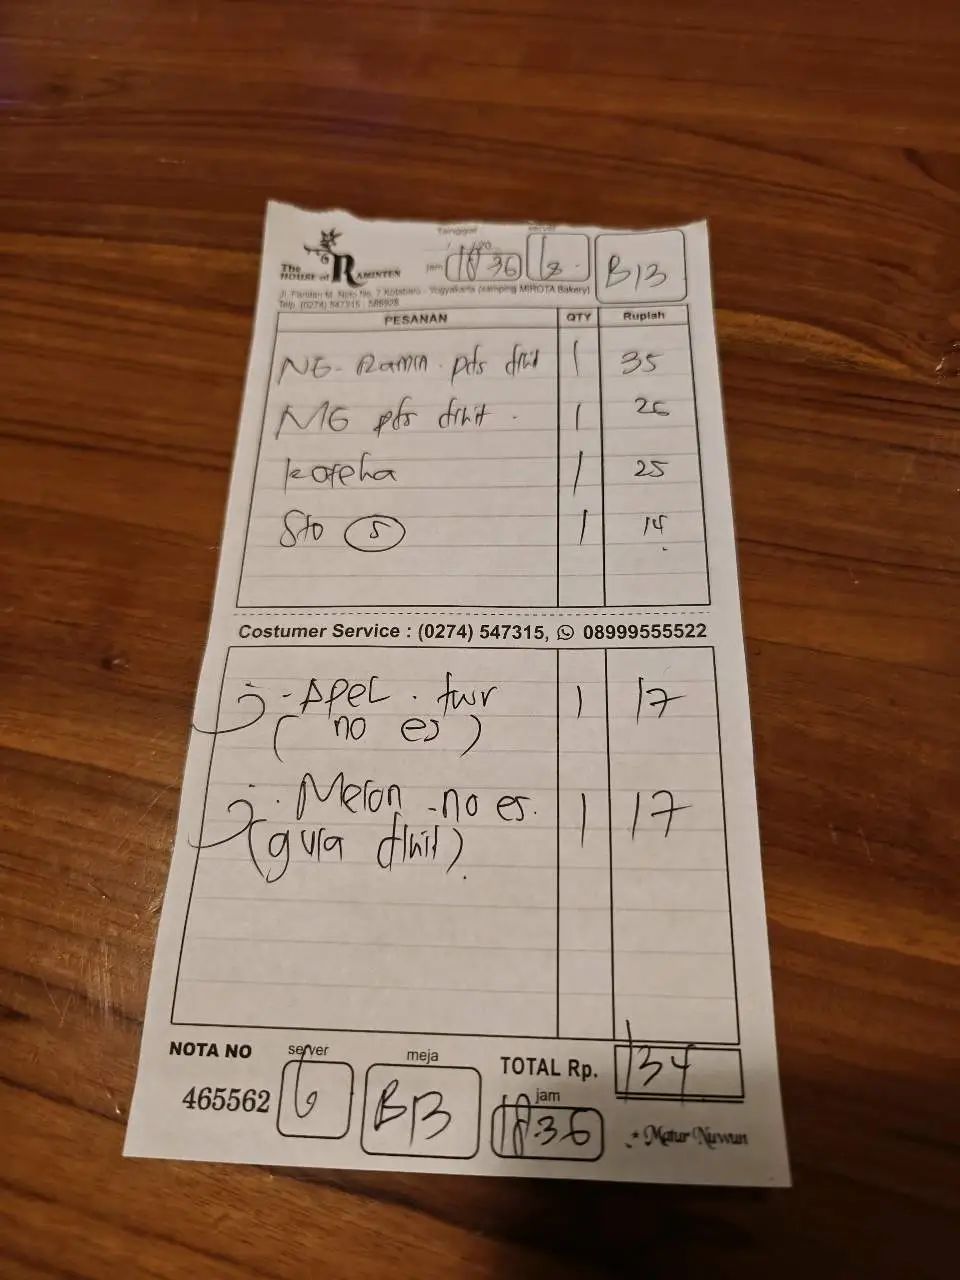 Tanggal server
The HOUSE of RAMINTEN jam 18 36 B13
Jl. Faridan M. Noto No. 7 Kotabaru - Yogyakarta (samping MIROTA Bakery)
Telp. (0274) 547315
PESANAN QTY Rupiah
NG- Ramin. pds dkit 1 35
MG pds dikit. 1 26
1 25
Sto 5 1 14
Costumer Service : (0274) 547315, 08999555522
- Apel. 1 17
(no es)
. Melon -no es. 1 17
(gula dikit).
NOTA NO server meja TOTAL Rp. 134
465562 6 B13 jam
18.36 Matur Nuwun